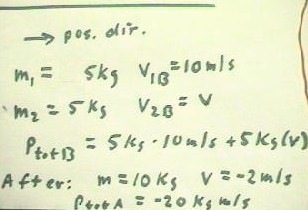 → pos. dir.
m₁ = 5kg V₁B = 10m/s
m₂ = 5kg V₂B = V
PtotB = 5kg · 10m/s + 5kg(v)
After: m = 10kg V = -2m/s
PtotA = -20 kg m/s